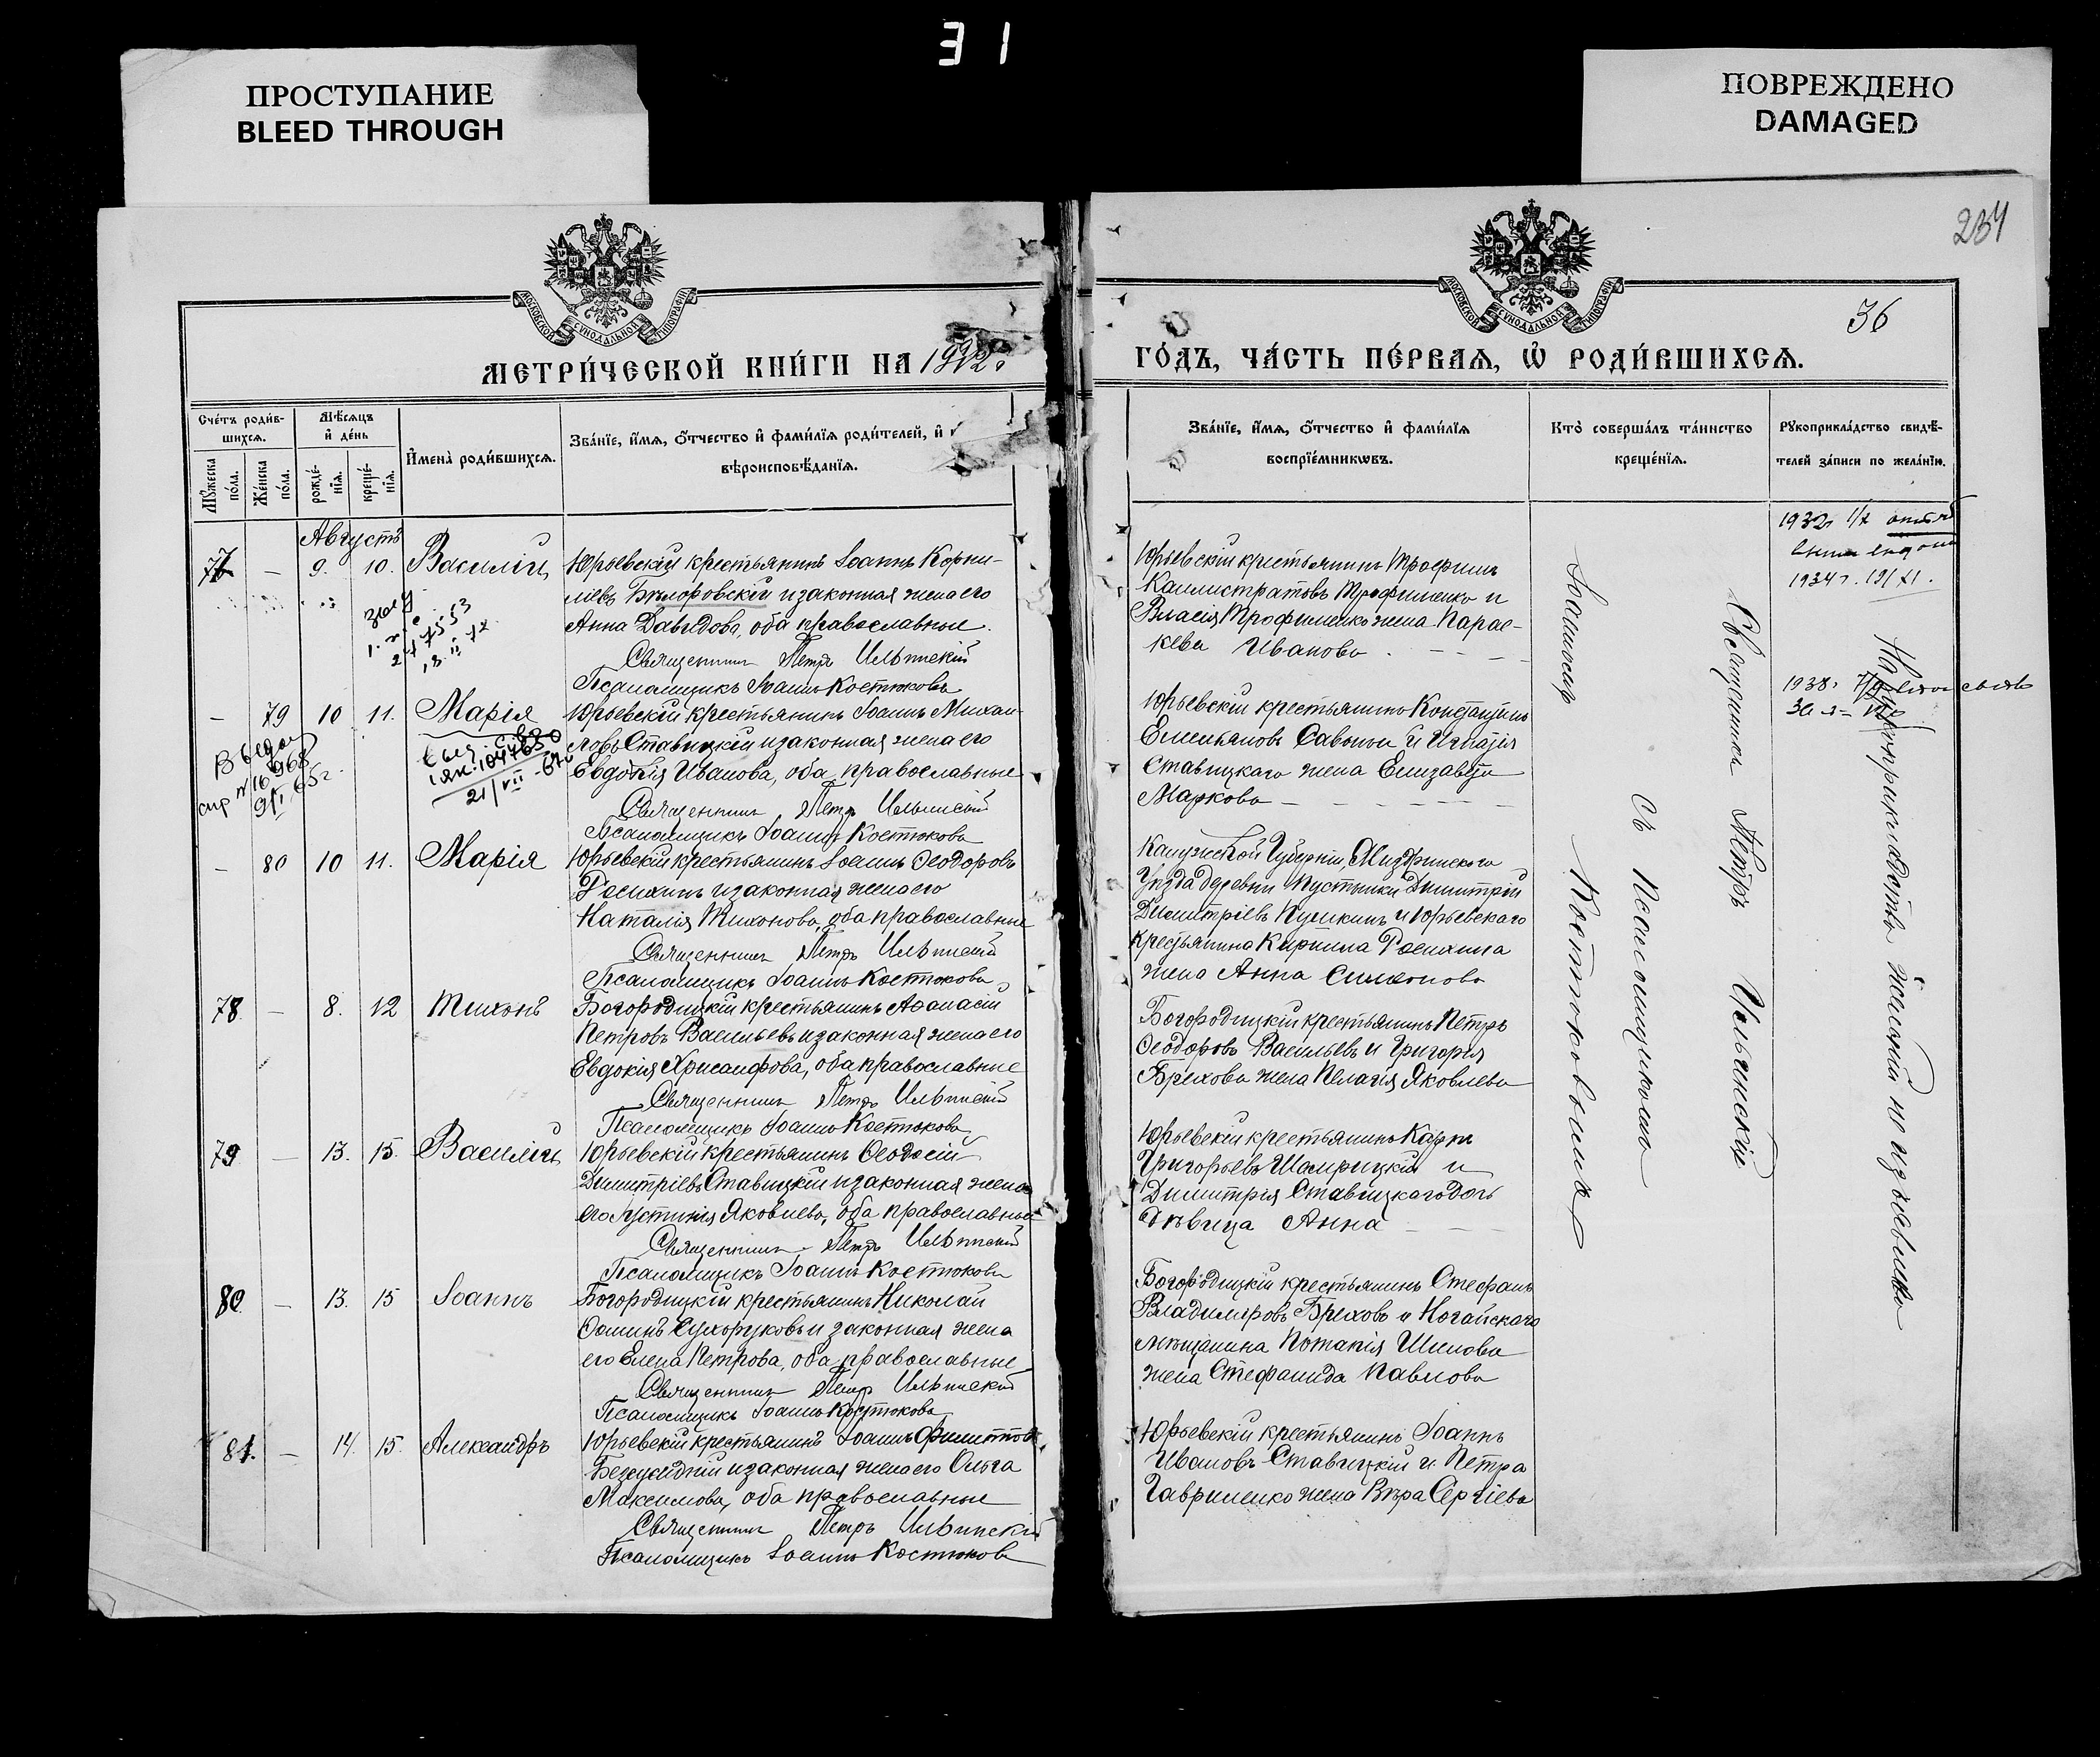 ПРОСТУПАНИЕ
BLEED THROUGH
31
ПОВРЕЖДЕНО
DAMAGED
234
36
МОСКОВСКОЙ СѴНОДАЛЬНОЙ ТИПОГРАФІИ
МОСКОВСКОЙ СѴНОДАЛЬНОЙ ТИПОГРАФІИ
МЕТРИ́ЧЕСКОЙ КНИ́ГИ НА 1912 г.
ГО́ДЪ, ЧА́СТЬ ПЕ́РВАЯ, Ѡ҆ РОДИ́ВШИХСЯ.
Сче́тъ роди́в-
шихся.
Мѣ́сяцъ
и҆ де́нь
Му́жеска
по́ла.
Же́нска
по́ла.
рожде́-
нїя.
креще́-
нїя.
И҆мена̀ роди́вшихся.
Зва́нїе, и҆́мя, ѻ҆́тчество и҆ фами́лїя роди́телей, и҆
вѣроисповѣ́данїя.
Зва́нїе, и҆́мя, ѻ҆́тчество и҆ фами́лїя
воспрїе́мникѡвъ.
Кто̀ соверша́лъ та́инство
креще́нїя.
Рꙋкоприкла́дство свидѣ́-
телей за́писи по жела́нїю.
Августъ
77 — 9. 10. Василій
Юрьевскій крестьянинъ Іоаннъ Корни-
ліевъ Бѣлоровскій и законная жена его
Анна Давыдова, оба православные.
Священникъ Петръ Ильинскій
Псаломщикъ Іоаннъ Костюковъ
Юрьевскій крестьянинъ Трофимъ
Каллистратовъ Трофименко и
Власія Трофименко жена Парас-
кева Иванова.
1932 г. 1/X
1934 г. 19/XI.
— 79 10 11. Марія
Юрьевскій крестьянинъ Іоаннъ Михаи-
ловъ Ставицкій и законная жена его
Евдокія Иванова, оба православные
Священникъ Петръ Ильинскій
Псаломщикъ Іоаннъ Костюковъ
21/VII - 67
Юрьевскій крестьянинъ Константинъ
Емельяновъ Савонъи и Игнатія
Ставицкаго жена Елизавета
Маркова
1938 г.
— 80 10 11. Марія
Юрьевскій крестьянинъ Іоаннъ Ѳеодоровъ
Росихинъ и законная жена его
Наталія Тихонова, оба православные
Священникъ Петръ Ильинскій
Псаломщикъ Іоаннъ Костюковъ
Калужской Губерніи,
Уѣзда деревни Пустынки Димитрій
Димитріевъ Кушкинъ и Юрьевскаго
крестьянина Кирилла Росихина
жена Анна Симеонова
78 — 8. 12 Тихонъ
Богородицкій крестьянинъ Аѳанасій
Петровъ Васильевъ и законная жена его
Евдокія Хрисанфова, оба православные
Священникъ Петръ Ильинскій
Псаломщикъ Іоаннъ Костюковъ
Богородицкій крестьянинъ Петръ
Ѳеодоровъ Васильевъ и Григорія
Брехова жена Пелагія Яковлева
79 — 13. 15. Василій
Юрьевскій крестьянинъ Ѳеодосій
Димитріевъ Ставицкій и законная жена
его Іустинія Яковлева, оба православные
Священникъ Петръ Ильинскій
Псаломщикъ Іоаннъ Костюковъ
Юрьевскій крестьянинъ Карпъ
Григорьевъ Шамрицкій и
Димитрія Ставицкаго дочь
дѣвица Анна
80 — 13. 15 Іоаннъ
Богородицкій крестьянинъ Николай
Ѳоминъ Сухоруковъ и законная жена
его Елена Петрова, оба православные
Священникъ Петръ Ильинскій
Псаломщикъ Іоаннъ Костюковъ
Богородицкій крестьянинъ Стефанъ
Владиміровъ Бреховъ и Ногайскаго
мѣщанина Потапія Шилова
жена Стефанида Павлова
81. — 14. 15. Александръ
Юрьевскій крестьянинъ Іоаннъ Филипповъ
и законная жена его Ольга
Максимова, оба православные
Священникъ Петръ Ильинскій
Псаломщикъ Іоаннъ Костюковъ
Юрьевскій крестьянинъ Іоаннъ
Ивановъ Ставицкій и Петра
Гавриленко жена Вѣра Сергіева
Священникъ Петръ Ильинскій
Съ Псаломщикомъ
Іоанномъ Костюковымъ
На рукоприкладство желаній не изъявили